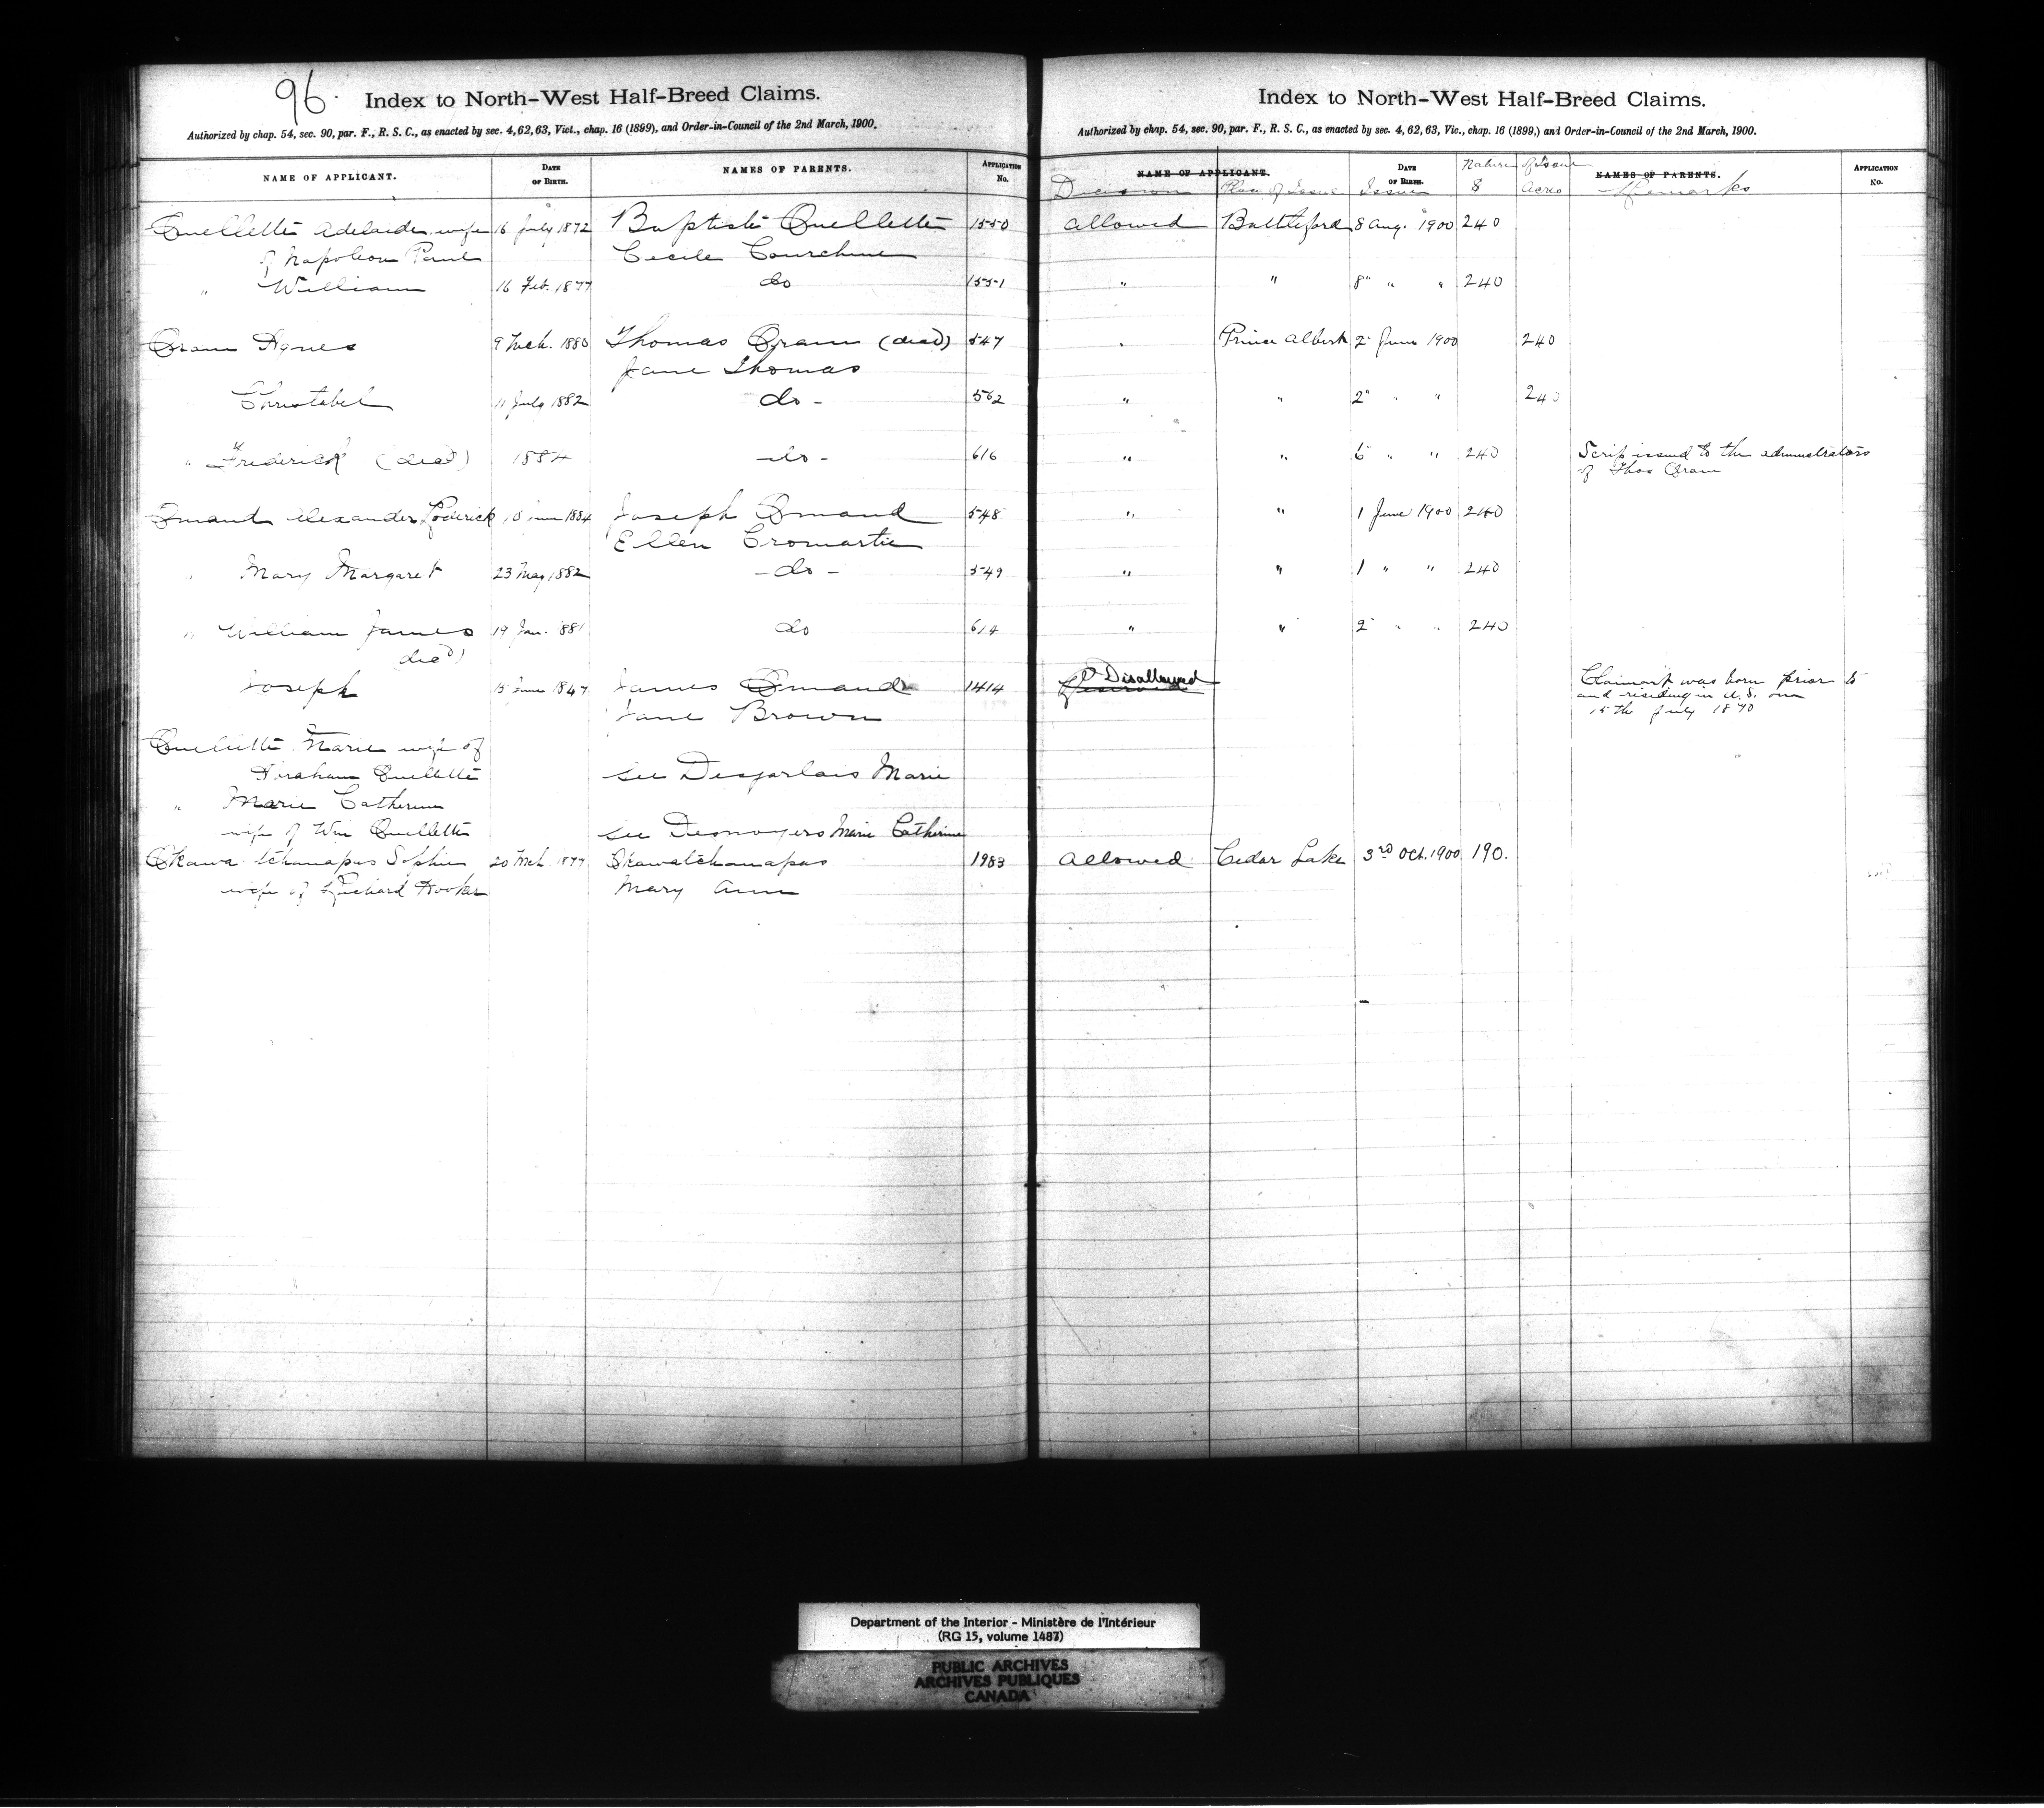 96.
Index to North-West Half-Breed Claims.
Authorized by chap. 54, sec. 90, par. F., R. S. C., as enacted by sec. 4, 62, 63, Vict., chap. 16 (1899), and Order-in-Council of the 2nd March, 1900.
NAME OF APPLICANT. DATE OF BIRTH. NAMES OF PARENTS. APPLICATION No.
Ouellette Adelaide, wife 16 July 1872 Baptiste Ouellette 1550
of Napoleon Paul Cecile Courchene
" William 16 Feb. 1877 do 1551
Oram Agnes 9 Mch. 1880 Thomas Oram (dead) 547
Jane Thomas
Christabel 11 July 1882 do - 562
" Frederick (dead) 1884 - do - 616
Omand Alexander Roderick 18 June 1884 Joseph Omand 548
Ellen Cromartie
" Mary Margaret 23 May 1882 - do - 549
" William James 19 Jan. 1881 do 614
dead)
Joseph 15 June 1847 James Omand 1414
Jane Brown
Ouellette Marie wife of
Abraham Ouellette see Desjarlais Marie
" Marie Catherine
wife of Wm Ouellette see Desnoyers Marie Catherine
Okawa tchanapus Sophie 20 Mch. 1877 Okawatchanapas 1983
wife of Richard Hooker Mary Ann
Index to North-West Half-Breed Claims.
Authorized by chap. 54, sec. 90, par. F., R. S. C., as enacted by sec. 4, 62, 63, Vic., chap. 16 (1899,) and Order-in-Council of the 2nd March, 1900.
NAME OF APPLICANT. DATE OF BIRTH. Nature of Issue NAMES OF PARENTS. APPLICATION No.
Decision Place of Issue Issue $ Acres Remarks
Allowed Battleford 8 Aug. 1900 240
" " 8" " " 240
" Prince Albert 2 June 1900 240
" " 2 " " 240
" " 6 " " 240 Scrip issued to the administrators
of Thos Oram
" " 1 June 1900 240
" " 1 " " 240
" " 2 " " 240
Disallowed Claimant was born prior to
and residing in U.S. on
15th July 1870
Allowed Cedar Lake 3rd Oct. 1900 190.
Department of the Interior - Ministère de l'Intérieur
(RG 15, volume 1487)
PUBLIC ARCHIVES
ARCHIVES PUBLIQUES
CANADA